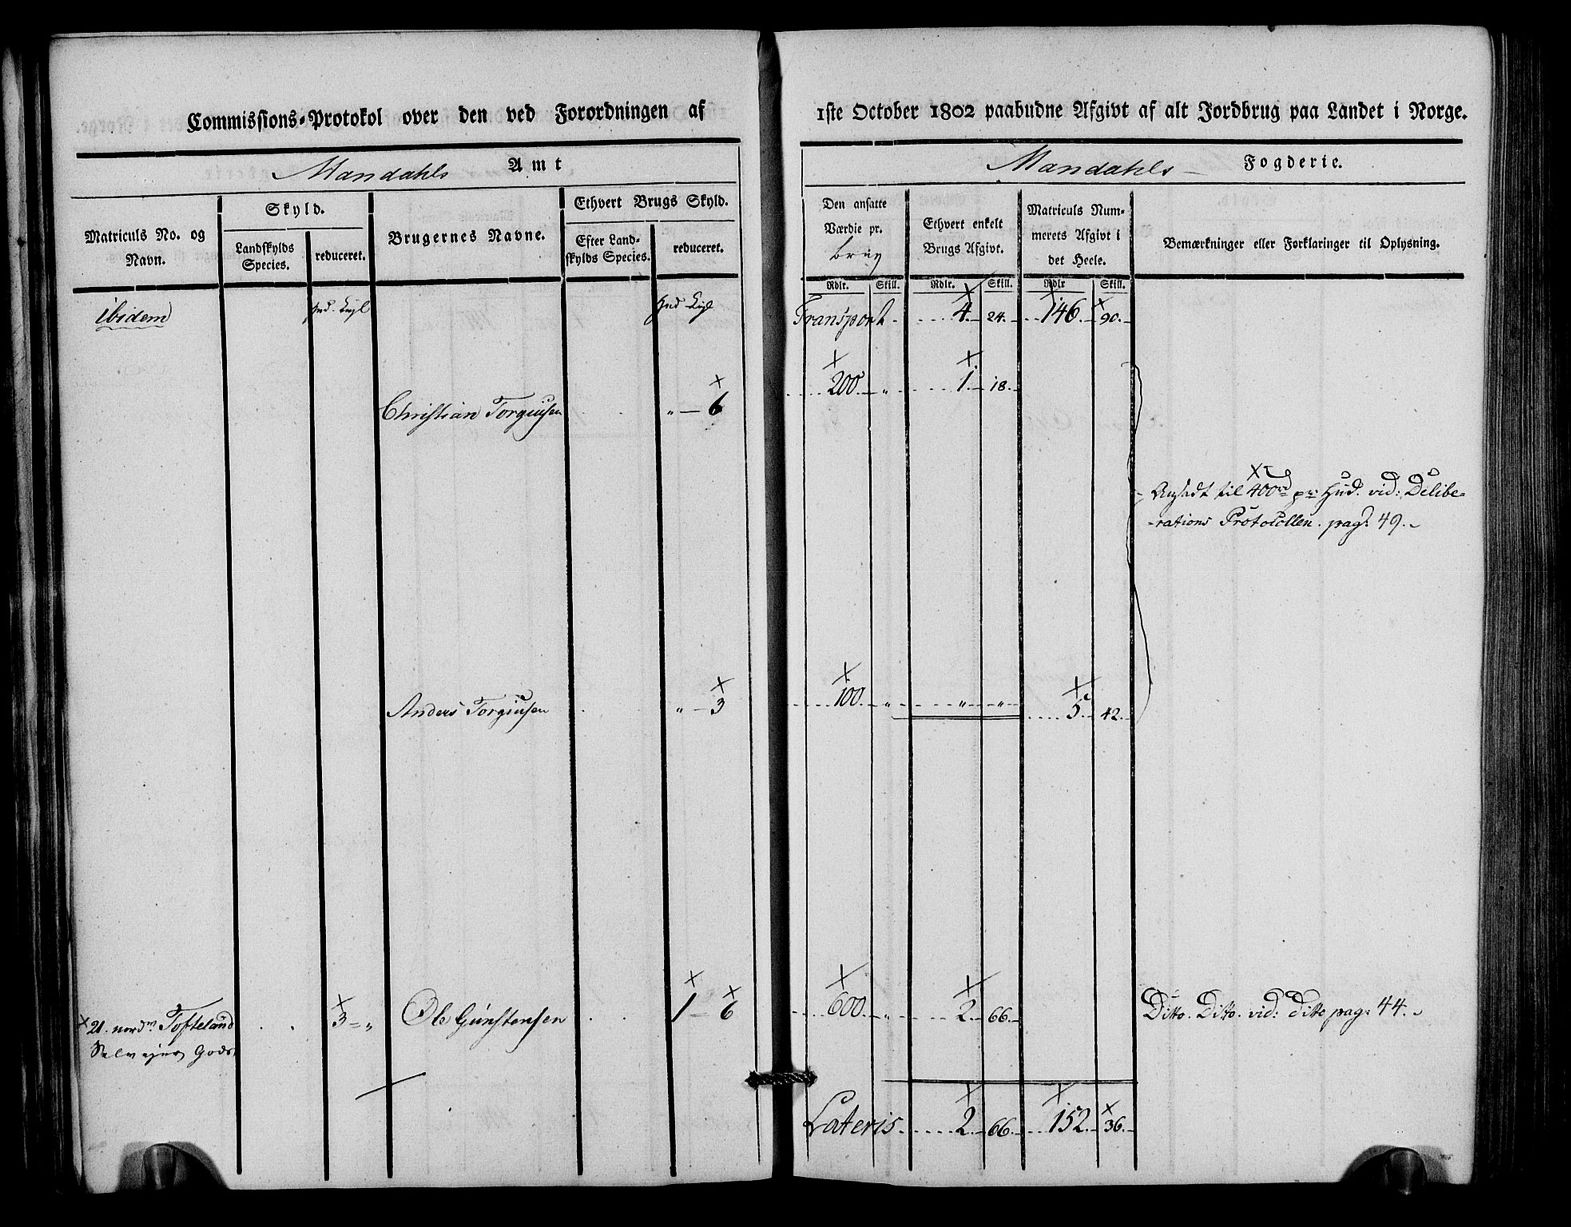 Commissions-Protokol over den ved Forordningen af
1ste October 1802 paabudne Afgivt af alt Jordbrug paa Landet i Norge.
Mandahls Amt
Mandahls Fogderie.
Matriculs No. og Navn.
Skyld.
Landskylds Species.
reduceret.
Brugernes Navne.
Ethvert Brugs Skyld.
Efter Landskylds Species.
reduceret.
Den ansatte Værdie pr. brug
Rdlr. Skill.
Ethvert enkelt Brugs Afgivt.
Rdlr. Skill.
Matriculs Nummerets Afgivt i det Heele.
Rdlr Skill.
Bemærkninger eller Forklaringer til Oplysning.
ibidem Hud. Hud
Transport 4. 24. 146. 90.
Christian Torgiusen " 6 200 " 1. 18.
Ansadt til 400 rd pr: Hud. vid: Delibe=
-rations Protocollen. pag: 49.
Anders Torgiusen " 3 100. " " " 5. 42.
21. nordre Tofteland 3 " Ole Gunstensen 1 6 600. " 2. 66. Ditto. Ditto. vid: ditto pag: 44.
Selv ejer Gods
Lateris 2. 66. 152. 36.